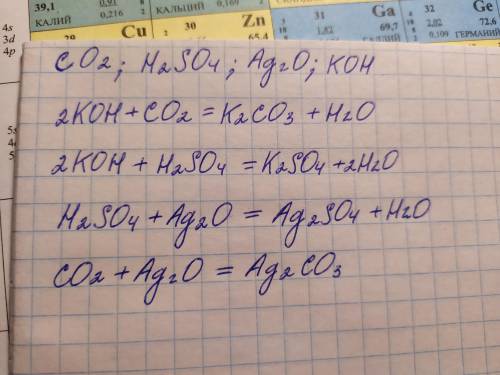 39,1 0,91 8 КАЛЬЦИЙ 0,169
КАЛИЙ 0,216 2
4s
3d
4p
29 Cu
30 Zn 65,4
31 Ga 69,7
1,82
32 Ge 72,6
2,02
0,109 ГЕРМАНИЙ
CO2; H2SO4; Ag2O; KOH
2KOH + CO2 = K2CO3 + H2O
2KOH + H2SO4 = K2SO4 + 2H2O
H2SO4 + Ag2O = Ag2SO4 + H2O
CO2 + Ag2O = Ag2CO3